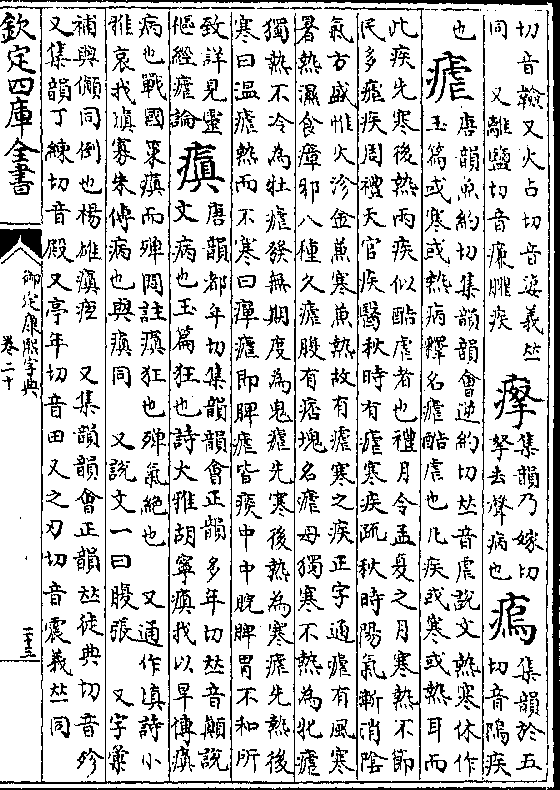 切音馦又火占切音姿義𠀤
同 又離鹽切音亷臁疾
集韻乃嫁切
拏去聲病也
集韻於五
切音隖疾
也
瘧
唐韻魚約切集韻韻會逆約切𠀤音虐說文熱寒休作
玉篇或寒或熱病釋名瘧酷虐也凡疾或寒或熱耳而
此疾先寒後熱兩疾似酷虐者也禮月令孟夏之月寒熱不節
民多瘧疾周禮天官疾醫秋時有瘧寒疾疏秋時陽氣漸消陰
氣方盛惟火沴金兼寒兼熱故有瘧寒之疾正字通瘧有風寒
暑熱濕食瘴邪八種久瘧腹有痞塊名瘧母獨寒不熱為牝瘧
獨熱不冷為牡瘧發無期度為鬼瘧先寒後熱為寒瘧先熱後
寒曰温瘧熱而不寒曰癉瘧即脾瘧皆痰中中脘脾胃不和所
致詳見靈
樞經瘧論
瘨
唐韻都年切集韻韻會正韻多年切𠀤音顛說
文病也玉篇狂也詩大雅胡寧瘨我以旱傳瘨
病也戰國策瘨而殫悶註瘨狂也殫氣絶也 又通作填詩小
雅哀我填寡朱傳病也與瘨同 又說文一曰腹張 又字彙
補與傎同倒也楊雄瘨疸 又集韻韻會正韻𠀤徒典切音殄
又集韻丁練切音殿又亭年切音田又之刃切音震義𠀤同
欽定四庫全書
御定康熙字典
卷二十
二十三